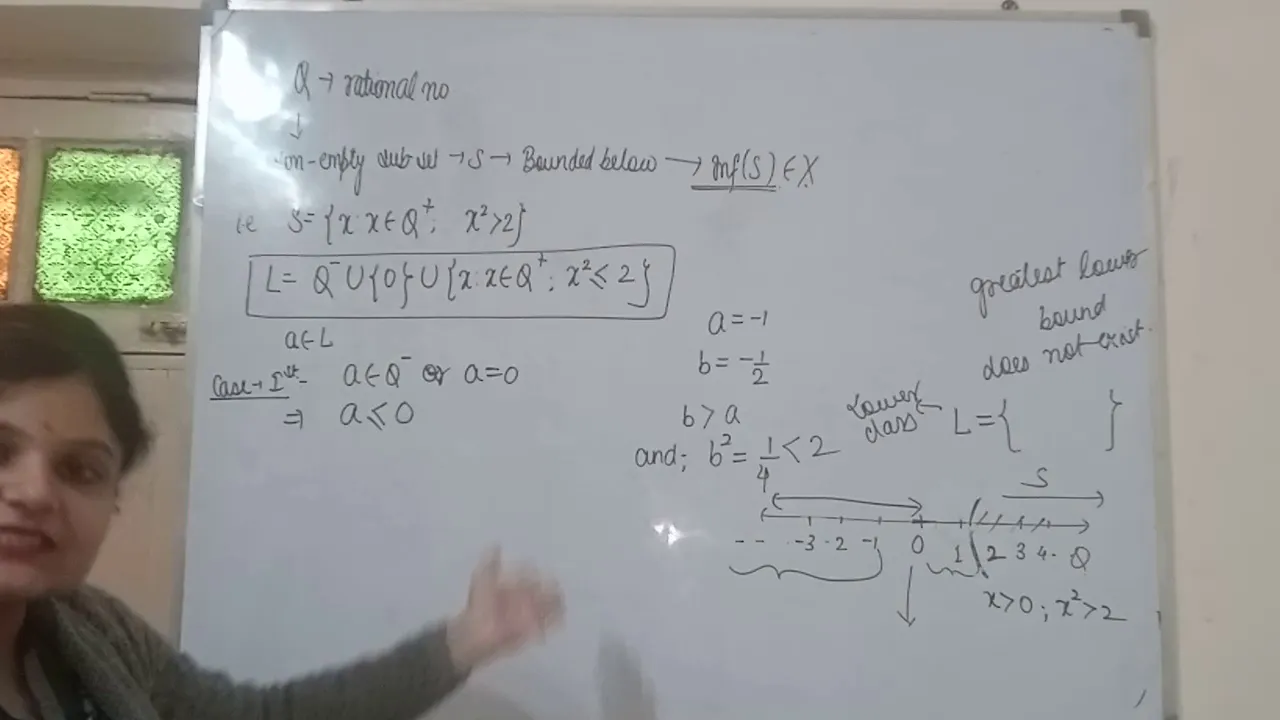 Q → rational no
↓
on-empty subset → S → Bounded below → inf(S) ∈ X
i.e S = {x : x ∈ Q⁺ ; x² > 2}
L = Q⁻ ∪ {0} ∪ {x : x ∈ Q⁺ ; x² ≤ 2}
a ∈ L
Case → Ist - a ∈ Q⁻ or a = 0
⇒ a ≤ 0
a = -1
b = -1/2
b > a
and; b² = 1/4 < 2
greatest lower
bound
does not exist.
Lower
class
L = { }
S
-- -3 -2 -1 0 1 2 3 4. Q
x > 0 ; x² > 2